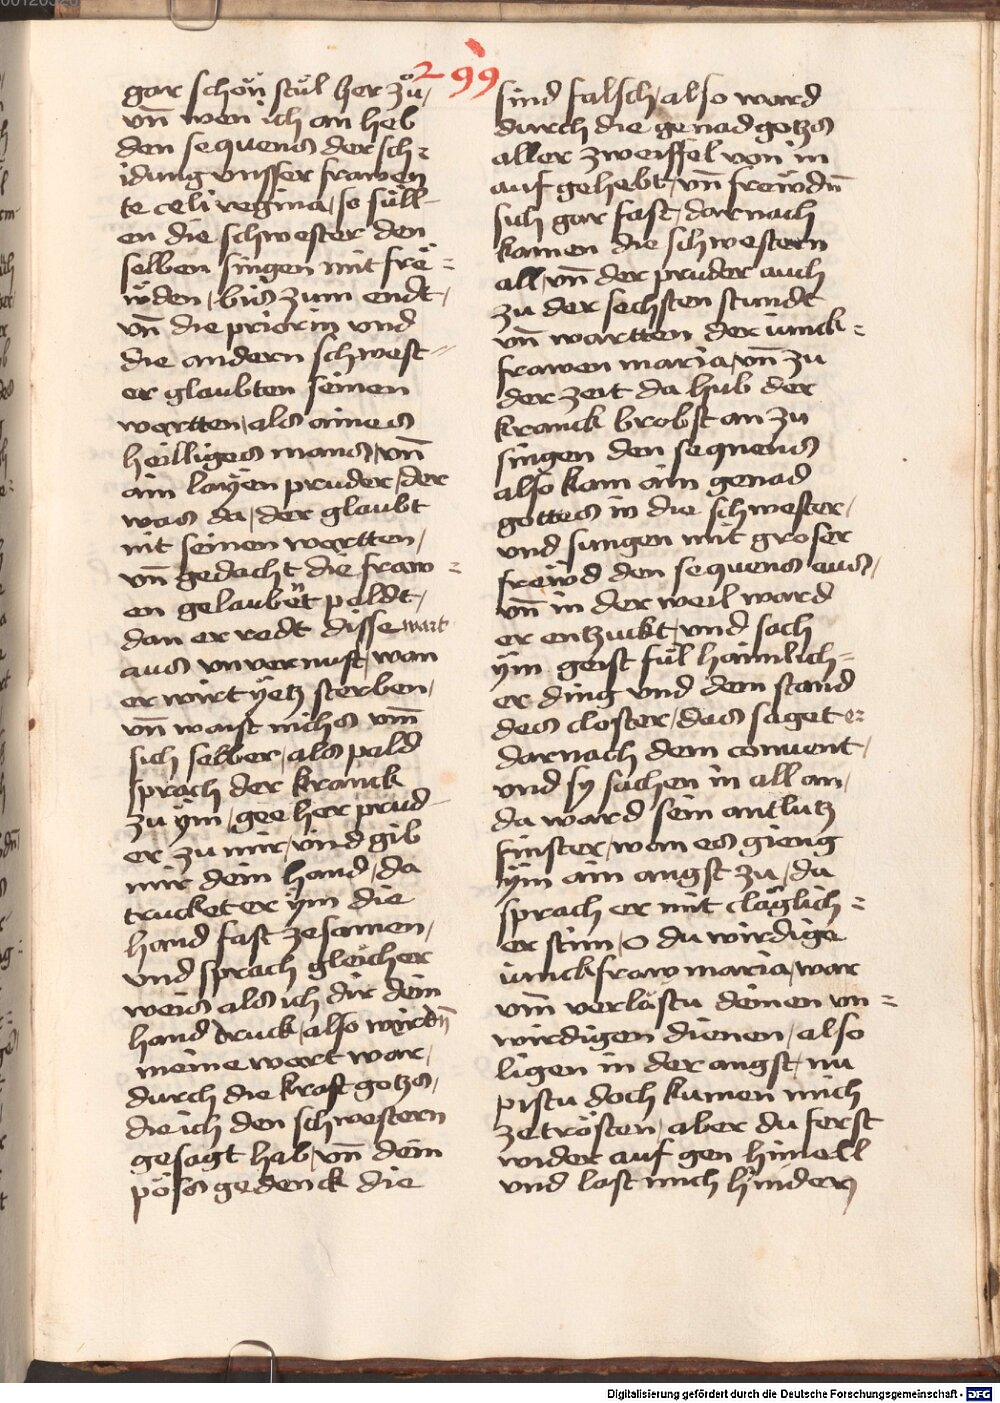 299
gar schön stül her zů,
vn̄ wen ich an heb
den sequens der sch=
idung vnsser frawen
te celi regina, so süll-
en die schwester den
selben singen mit fre=
ẅden, bis zum endt,
vn̄ die priorin vnd
die andern schwest=
er glaubten seinen
wortten, als aines
heilliges mans, vn̄
ain layen pruder, der
was da, der glaubt
nit seinen wortten,
vn̄ gedacht die fraw=
en gelaubent paldt,
dan er redt disse wart
aus vnvernuft, wan
er wirt yetz sterben,
vn̄ waist nichs vm̄
sich selber, als pald
sprach der kranck
zu ÿm, gee her prud-
er zu mir, vnd gib
mir dein hand, da
trucket er ÿm die
hand fast zesamen,
vnd sprach gleicher
weis als ich dir dein
hand druck, also wirdn̄
meine wort war,
durch die kraft gotzs,
die ich den schwestern
gesagt hab, vn̄ dein
pöss gedenck die
sind falsch, also ward
durch die genad gotzs
aller zweiffel von in
auf gehebt, vn̄ frewdn̄
sich gar fast, darnach
kamen die schwestern
all, vn̄ der pruder auch
zu der sechsten stundt
vn̄ wartten der iunck=
frawen maria, vn̄ zu
der zeit da hub der
kranck brobst an zu
singen den sequens
also kam ain genad
gottes in die schwester,
vnd sungen mit groser
freẅd den sequens aus,
vn̄ in der weil ward
er entzuckt, vnd sach
ÿm geist fül haimlich=
er ding vnd dem stand
des closter, das saget er
darnach dem conuent,
vnd sy sachen in all an,
da ward sein antlutz
finster, wan es gieng
ÿm ain angst zu, da
sprach er mit cläglich=
er stim, o du wirdige
iunckfraw maria, war
vm̄ verlästu deinen vn=
wirdigen dienen, also
ligen in der angst, nu
pistu doch kumen mich
zetrösten, aber du ferst
wider auf gen himell
vnd last mich hinder